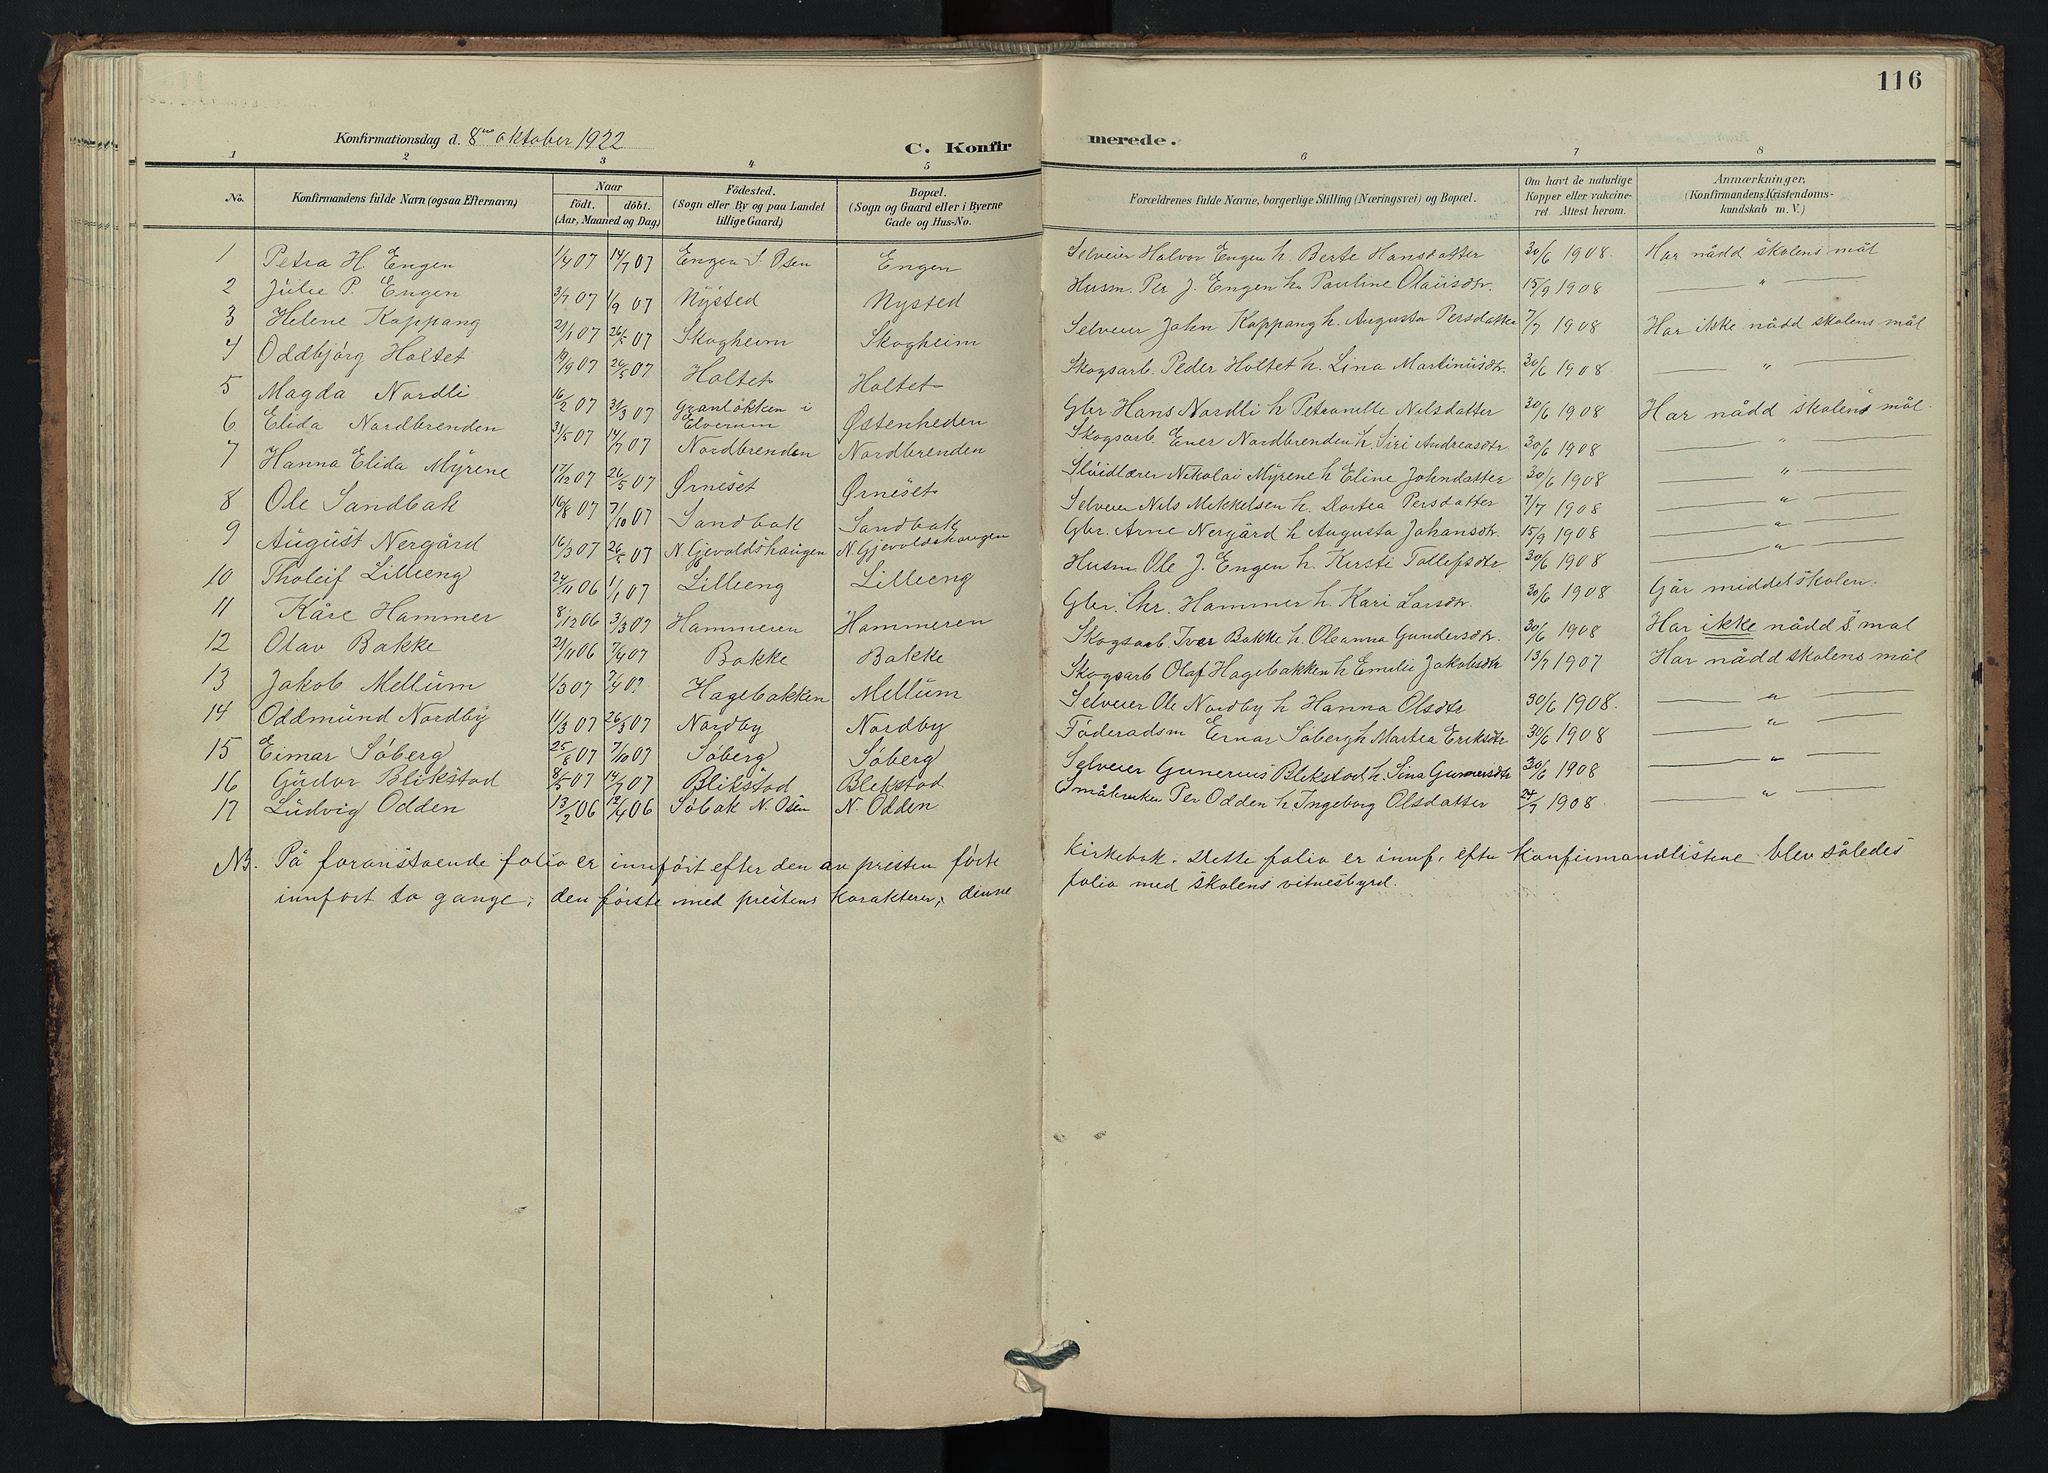 116
Konfirmationsdag d. 8de oktober 1922
C. Konfirmerede.
1 2 3 4 5 6 7 8
No. Konfirmandens fulde Navn (ogsaa Efternavn) Naar födt. döbt. (Aar, Maaned og Dag) Födested. (Sogn eller By og paa Landet tillige Gaard) Bopæl. (Sogn og Gaard eller i Byerne Gade og Hus-No. Forældrenes fulde Navne, borgerlige Stilling (Næringsvei) og Bopæl. Om havt de naturlige Kopper eller vakcineret Attest herom. Anmærkninger, (Konfirmandens Kristendomskundskab m. V.)
1 Petra H. Engen 1/4 07 14/7 07 Engen S. Osen Engen Selveier Halvor Engen h. Berte Hansdatter 30/6 1908. Har nådd skolens mål
2 Julie P. Engen 3/7 07 1/9 07 Nysted Nysted Husm. Per J. Engen h. Pauline Olausdtr. 15/9 1908 — " —
3 Helene Koppang 21/1 07 26/5 07 Skogheim Skogheim Selveier John Koppang h. Augusta Persdatter 7/7 1908 Har ikke nådd skolens mål
4 Oddbjörg Holtet 19/9 07 26/5 07 Holtet Holtet Skogsarb. Peder Holtet h. Lina Martinusdtr. 30/6 1908. — " —
5 Magda Nordli 16/2 07 31/3 07 Granløkken i Elverum Østenheden Gbr Hans Nordli h Petronelle Nilsdatter 30/6 1908 Har nådd skolens mål.
6 Elida Nordbrenden 31/5 07 14/7 07 Nordbrenden Nordbrenden Skogsarb. Ener Nordbrenden h. Siri Andreasdtr 30/6 1908 — " —
7 Hanna Elida Myrene 17/12 07 26/5 07 Ørneset Ørneset Sløidlærer Nikolai Myrene h Eline Johndatter 30/6 1908 — " —
8 Ole Sandbak 16/8 07 7/10 07 Sandbak Sandbak Selveier Nils Mikkelsen h. Dortea Persdatter 7/7 1908 — " —
9 August Nergård 16/3 07 26/5 07 N. Gjevoldshaugen N. Gjevoldshaugen Gbr. Arne Nergård h Augusta Johansdtr. 15/9 1908 — " —
10 Tholeif Lilleeng 24/11 06 1/1 07 Lilleeng Lilleeng Husm Ole J. Engen h. Kirsti Tollefsdtr 30/6 1908 — " —
11 Kåre Hammer 8/12 06 3/3 07 Hammeren Hammeren Gbr. Chr. Hammer h. Kari Larsdtr. 30/6 1908 Går middelskolen.
12 Olav Bakke 21/11 06 7/4 07 Bakke Bakke Skogsarb Iver Bakke h. Oleanna Gundersdtr. 30/6 1908 Har ikke nådd s. mål
13 Jakob Mellum 1/3 07 7/4 07 Hagebakken Mellum Skogsarb Olaf Hagebakken h Emilie Jakobsdtr 13/7 1907 Har nådd skolens mål
14 Oddmund Nordby 11/3 07 26/3 07 Nordby Nordby Selveier Ole Nordby h Hanna Olsdtr 30/6 1908. — " —
15 Eimar Söberg 25/8 07 7/10 07 Söberg Söberg Föderadsm Ernar Söberg h Martea Eriksdtr 30/6 1908 — " —
16 Gudor Blikstad 8/5 07 14/7 07 Blikstad Blekstad Selveier Gunerius Blekstad h. Sina Gunnersdtr 30/6 1908 — " —
17 Ludvig Odden 13/2 06 12/4 06 Söbak N. Osen N. Odden Småbruker Per Odden h Ingeborg Olsdatter 24/7 1908. — " —
NB. På foranstaaende folio er innført efter den av presten førte kirkebok. Dette folio er innf. efter konfirmandlistene blev således
innført to gange; den første med prestens karakterer, denne folio med skolens vitnesbyrd.